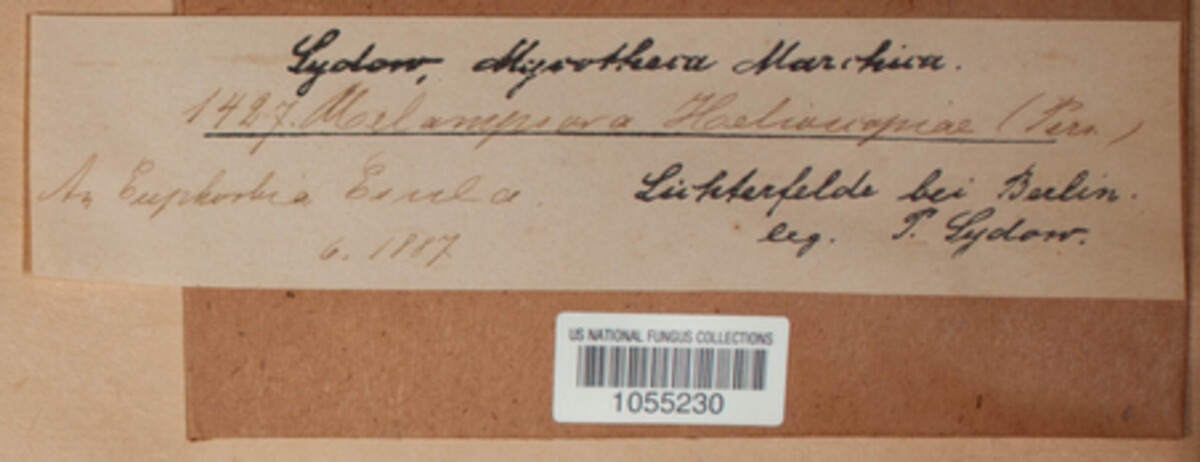 Sydow, Mycotheca Marchica.
1427. Melampsora Helioscopiae (Pers.)
An Euphorbia Esula.
6. 1887
Lichterfelde bei Berlin.
leg. P. Sydow.
US NATIONAL FUNGUS COLLECTIONS
1055230